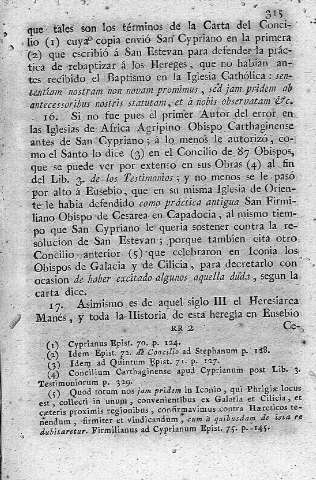 315
que tales son los términos de la Carta del Conci-
lio (1) cuya copia envió San Cypriano en la primera
(2) que escribió á San Estevan para defender la prác-
tica de rebaptizar á los Hereges, que no habian an-
tes recibido el Baptismo en la Iglesia Cathólica: sen-
tentiam nostram non novam promimus, sed jam pridem ab
antecessoribus nostris statutam, et à nobis observatam &c.
16. Si no fue pues el primer Autor del error en
las Iglesias de Africa Agripino Obispo Carthaginense
antes de San Cypriano; á lo menos le autorizó, co-
mo el Santo lo dice (3) en el Concilio de 87 Obispos,
que se puede ver por extenso en sus Obras (4) al fin
del Lib. 3. de los Testimonios; y no menos se le pasó
por alto á Eusebio, que en su misma Iglesia de Orien-
te le habia defendido como práctica antigua San Firmi-
liano Obispo de Cesarea en Capadocia, al mismo tiem-
po que San Cypriano le queria sostener contra la re-
solucion de San Estevan; porque tambien cita otro
Concilio anterior (5) que celebraron en Iconia los
Obispos de Galacia y de Cilicia, para decretarlo con
ocasion de haber excitado algunos aquella duda, segun la
carta dice.
17. Asimismo es de aquel siglo III el Heresiarca
Manés, y toda la Historia de esta heregía en Eusebio
RR 2 Ce-
(1) Cyprianus Epist. 70. p. 124.
(2) Idem Epist. 72. de Concilio ad Stephanum p. 128.
(3) Idem ad Quintum Epist. 71. p. 127.
(4) Concilium Carthaginense apud Cyprianum post Lib. 3.
Testimoniorum p. 329.
(5) Quod totum nos jam pridem in Iconio, qui Phrigiæ locus
est, collecti in unum, convenientibus ex Galatia et Cilicia, et
cæteris proximis regionibus, confirmavimus contra Hæreticos te-
nendum, firmiter et vindicandum, cum à quibusdam de issa re
dubitaretur. Firmilianus ad Cyprianum Epist. 75. p. 145.